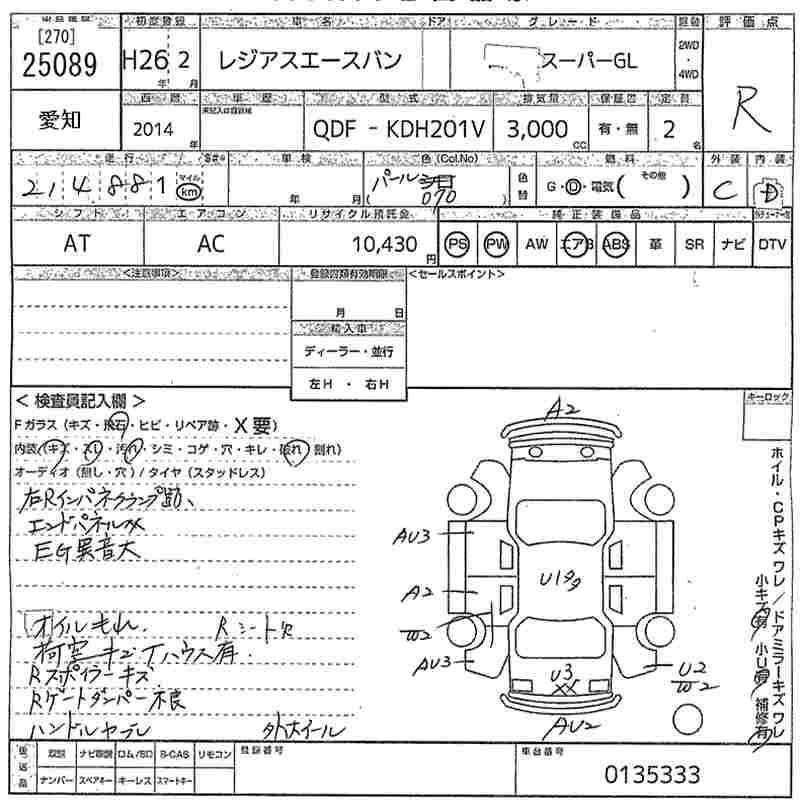 [270]
25089
初度登録
H26年 2月
車名
レジアスエースバン
ドア
グレード
スーパーGL
駆動
2WD
・
4WD
評価点
R
愛知
西暦
2014年
車歴
型式
QDF - KDH201V
排気量
3,000 CC
有・無
定員
2名
走行
214881
マイル
km
車検
年 月
色(Col.No)
パール
070
色替
燃料
G・D・電気( その他 )
外装
C
内装
D
シフト
AT
エアコン
AC
リサイクル預託金
10,430円
純正装備品
PS PW AW エアB ABS 革 SR ナビ DTV
<注意事項>
登録書類有効期限
月 日
<セールスポイント>
輸入車
ディーラー・並行
左H ・ 右H
キーロック
<検査員記入欄>
Fガラス(キズ・飛石・ヒビ・リペア跡・X要)
内装(キズ・スレ・汚れ・シミ・コゲ・穴・キレ・破れ・割れ)
オーディオ(無し・穴)/タイヤ(スタッドレス)
右Rインパネクランプ跡、
エンドパネルXX
EG異音大
オイルもれ. Rシート穴
荷室キズTハウス有
Rスポイラーキズ
Rゲートダンパー不良
ハンドルヤブレ 外ホイール
A2
AU3
A2
W2
AU3
U3
XX
AU2
U2
W2
ホイル・CPキズ ワレ/ドアミラーキズ ワレ
小キズ有 小U有 補修有
後返品
取説 ナビ取説 ロム/SD B-CAS リモコン
ナンバー スペアキー キーレス スマートキー
登録番号
車台番号
0135333